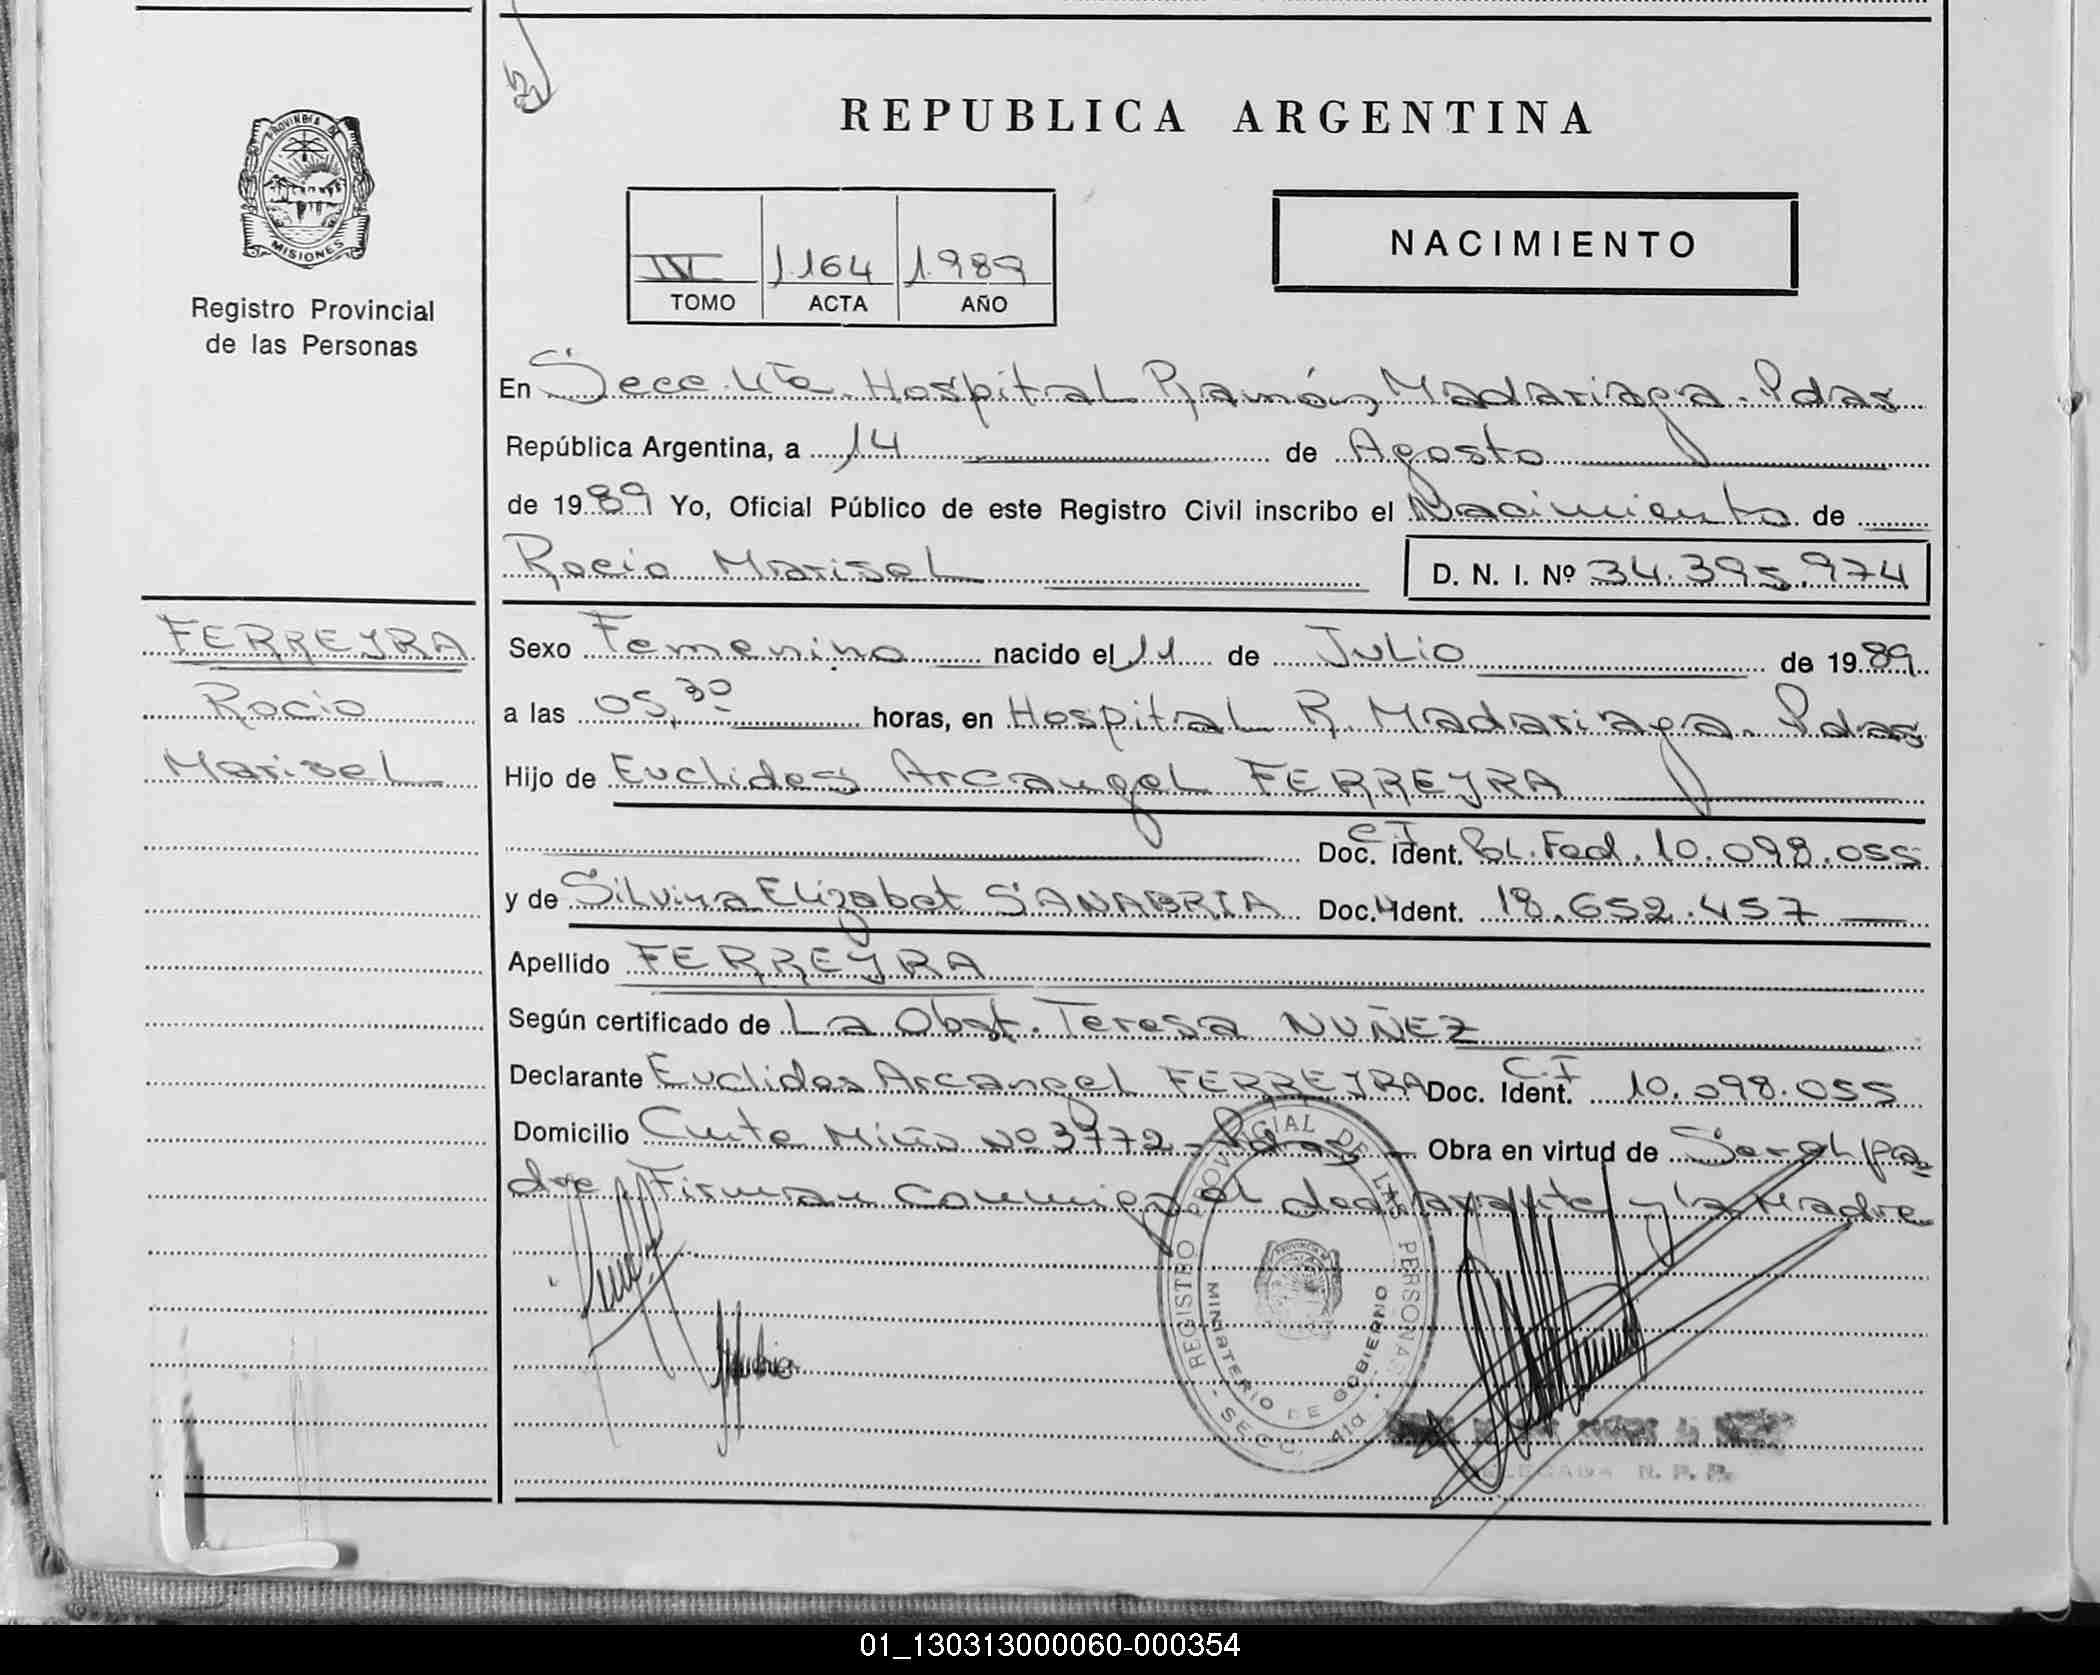 REPUBLICA ARGENTINA
PROVINCIA DE
MISIONES
Registro Provincial
de las Personas
IV 1.164 1.989
TOMO ACTA AÑO
NACIMIENTO
En Secc. 4ta. Hospital Ramón Madariaga. Pdas
República Argentina, a 14 de Agosto
de 1989 Yo, Oficial Público de este Registro Civil inscribo el Nacimiento de
Rocio Marisel D. N. I. Nº 34.395.974
FERREYRA
Rocio
Marisel
Sexo Femenino nacido el 11 de Julio de 1989
a las 05,30 horas, en Hospital R. Madariaga. Pdas
Hijo de Euclides Arcangel FERREYRA
C.I
Doc. Ident. Pol. Fed. 10.098.055
y de Silvina Elizabet SANABRIA Doc. Ident. 18.652.457
Apellido FERREYRA
Según certificado de La Obst. Teresa NUÑEZ
Declarante Euclides Arcangel FERREYRA Doc. Ident. C.I 10.098.055
Domicilio Nº 3772 - Pdas - Obra en virtud de Ser el pa
dre Firman conmigo el declarante y la Madre
REGISTRO PROVINCIAL DE LAS PERSONAS
MINISTERIO DE GOBIERNO
- SECC. 4ta. -
PROVINCIA DE
DELEGADA R. P. P.
01_130313000060-000354